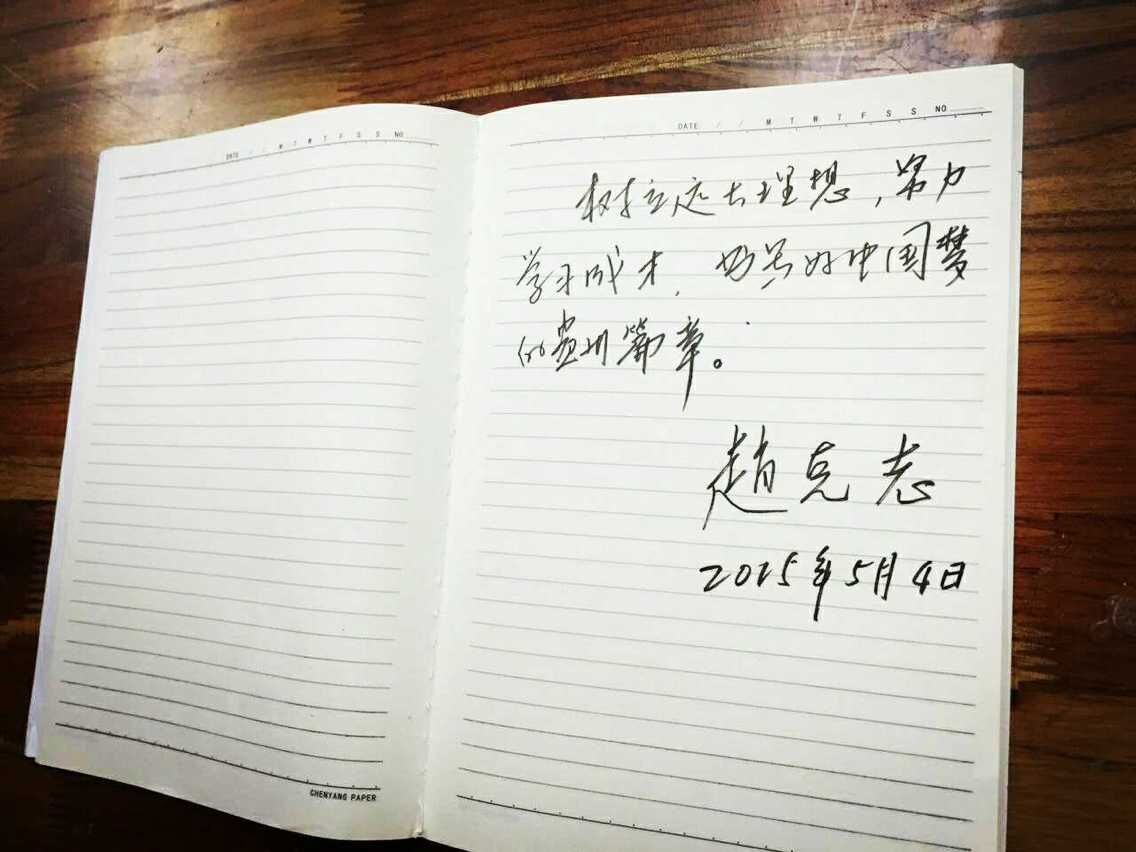 DATE / / M T W T F S S NO
DATE / / M T W T F S S NO
树立远大理想,努力
学习成才,书写好中国梦
的贵州篇章。
赵克志
2015年5月4日
CHENYANG PAPER